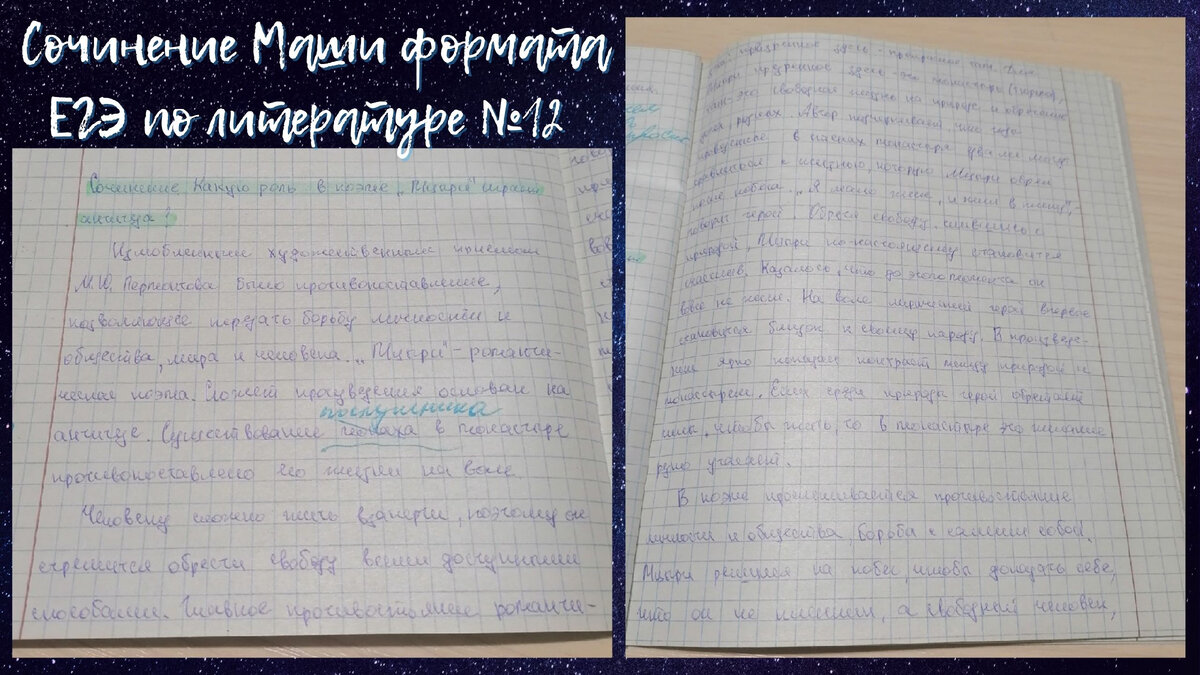 Сочинение Маши формата
ЕГЭ по литературе №12
Сочинение. Какую роль в поэме "Мцыри" играет
антитеза?
Излюбленным художественным приемом
М.Ю. Лермонтова было противопоставление,
позволяющее передать борьбу личности и
общества, мира и человека. "Мцыри" - романти-
ческая поэма. Сюжет произведения основан на
антитезе. Существование монаха в монастыре
послушника
противопоставлено его жизни на воле.
Человеку сложно жить взаперти, поэтому он
стремится обрести свободу всеми доступными
способами. Главное противостояние романти-
здесь
Мцыри здесь - это монастырь (тюрьма),
это свободная жизнь на природе и обретение
Автор подчеркивает, что
в стенах монастыря
с жизнью, которую Мцыри обрел
после побега. "Я мало жил, и жил в плену",
говорит герой. Обретя свободу, слившись с
природой, Мцыри по-настоящему становится
счастлив. Казалось, что до этого момента он
вовсе не жил. На воле лирический герой впервые
становится близок к своему народу. В произведе-
нии ярко показан контраст между природой и
монастырем. Если среди природы герой обретает
силы, чтобы жить, то в монастыре это желание
угасает.
В поэме прослеживается противостояние
личности и общества, борьба с самим собой.
Мцыри решился на побег, чтобы доказать себе,
что он не пленник, а свободный человек,